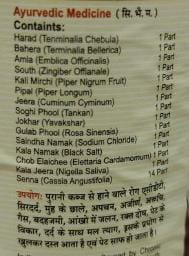 Ayurvedic Medicine ( सि. भै. म. )
Containts:
Harad (Tenminalia Chebula) 1 Part
Bahera (Terminalia Bellerica) 1 Part
Amla (Emblica Officinalis) 1 Part
South (Zingiber Offianale) 1 Part
Kali Mirchi (Piper Nigrum Fruit) 1 Part
Pipal (Piper Longum) 1 Part
Jeera (Cuminum Cyminum) 1 Part
Soghi Phool (Tankan) 1 Part
Jokhar (Yavakshar) 1 Part
Gulab Phool (Rosa Sinensis) 1 Part
Saindha Namak (Sodium Chloride) 1 Part
Kala Namak (Black Salt) 1 Part
Chob Elaichee (Elettaria Cardamomum) 1 Part
Kala Jeera (Nigella Saliva) 1 Part
Senna (Cassia Angustifolia) 14 Part
उपयोग: पुरानी कब्ज से हाने वाले रोग एसीडीटी,
सिरदर्द, मुंह के छाले, अपचन, अजीर्ण, अरूचि,
गैस, बदहजमी, आंखों में जलन, रक्त दोष, पेट के
विकार, दर्द के साथ मल त्याग, इसके प्रयोग से
खुलकर दस्त आता है एवं पेट साफ हो जाता है।